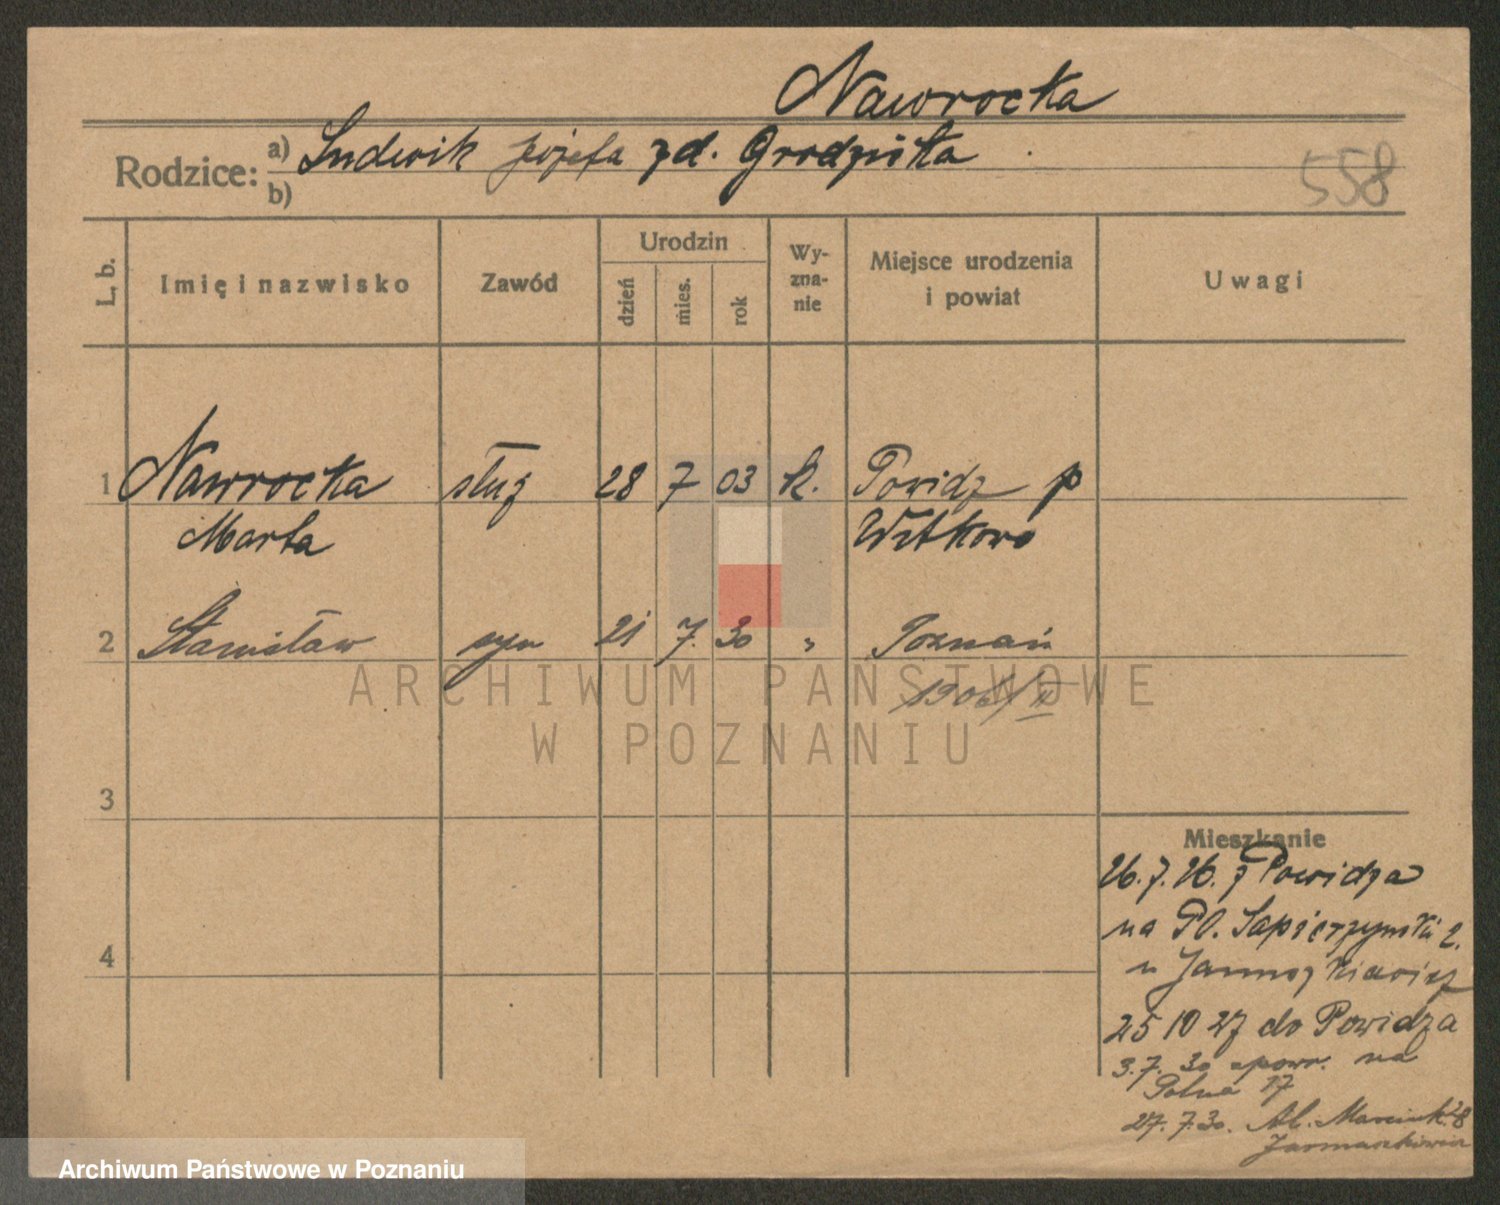 Nawrocka
Rodzice: a) Ludwik Józefa zd. Grodziska
b)
558
L. b.
Imię i nazwisko
Zawód
Urodzin
dzień
mies.
rok
Wy-
zna-
nie
Miejsce urodzenia
i powiat
Uwagi
1 Nawrocka służ 28 7 03 k. Powidz p
Marta Witkowo
2 Stanisław syn 21 7. 30 " Poznań
1906/II
ARCHIWUM PAŃSTWOWE
W POZNANIU
3
4
Mieszkanie
26.7.26. z Powidza
na Pl. Sapieżyński 2.
u
25 10 27 do Powidza
3.7.30 spowr. na
Polna 17
27.7.30. Al. Marcink. 28
Archiwum Państwowe w Poznaniu